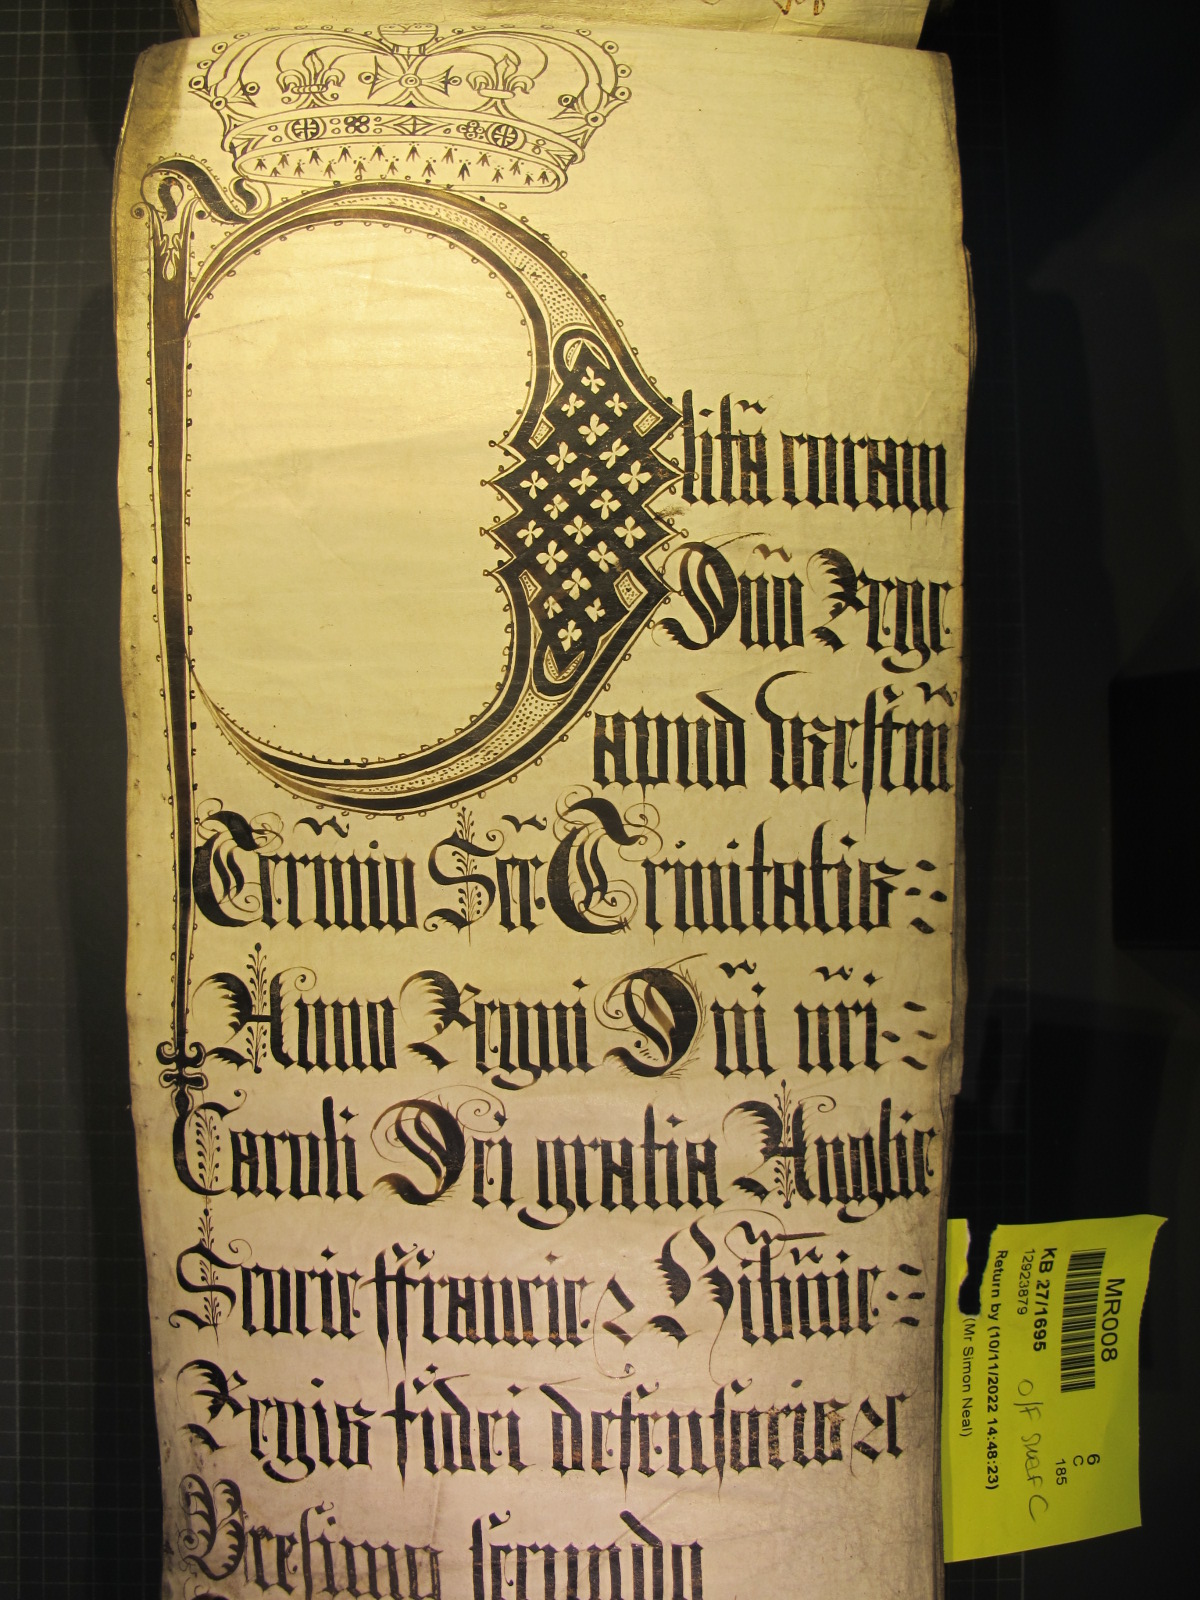 Plita coram
Dño Rege
apud Westm̃
Term̃io Scẽ Trinitatis
Anno Regni Dñi nr̃i
Caroli Dei gratia Anglie
Scocie ffrancie & Hibñie
Regis fidei defensoris &c
Vicesimo secundo
MR008
6
C
185
KB 27/1695
12923879
O/F
Return by (10/11/2022 14:48:23)
(Mr Simon Neal)